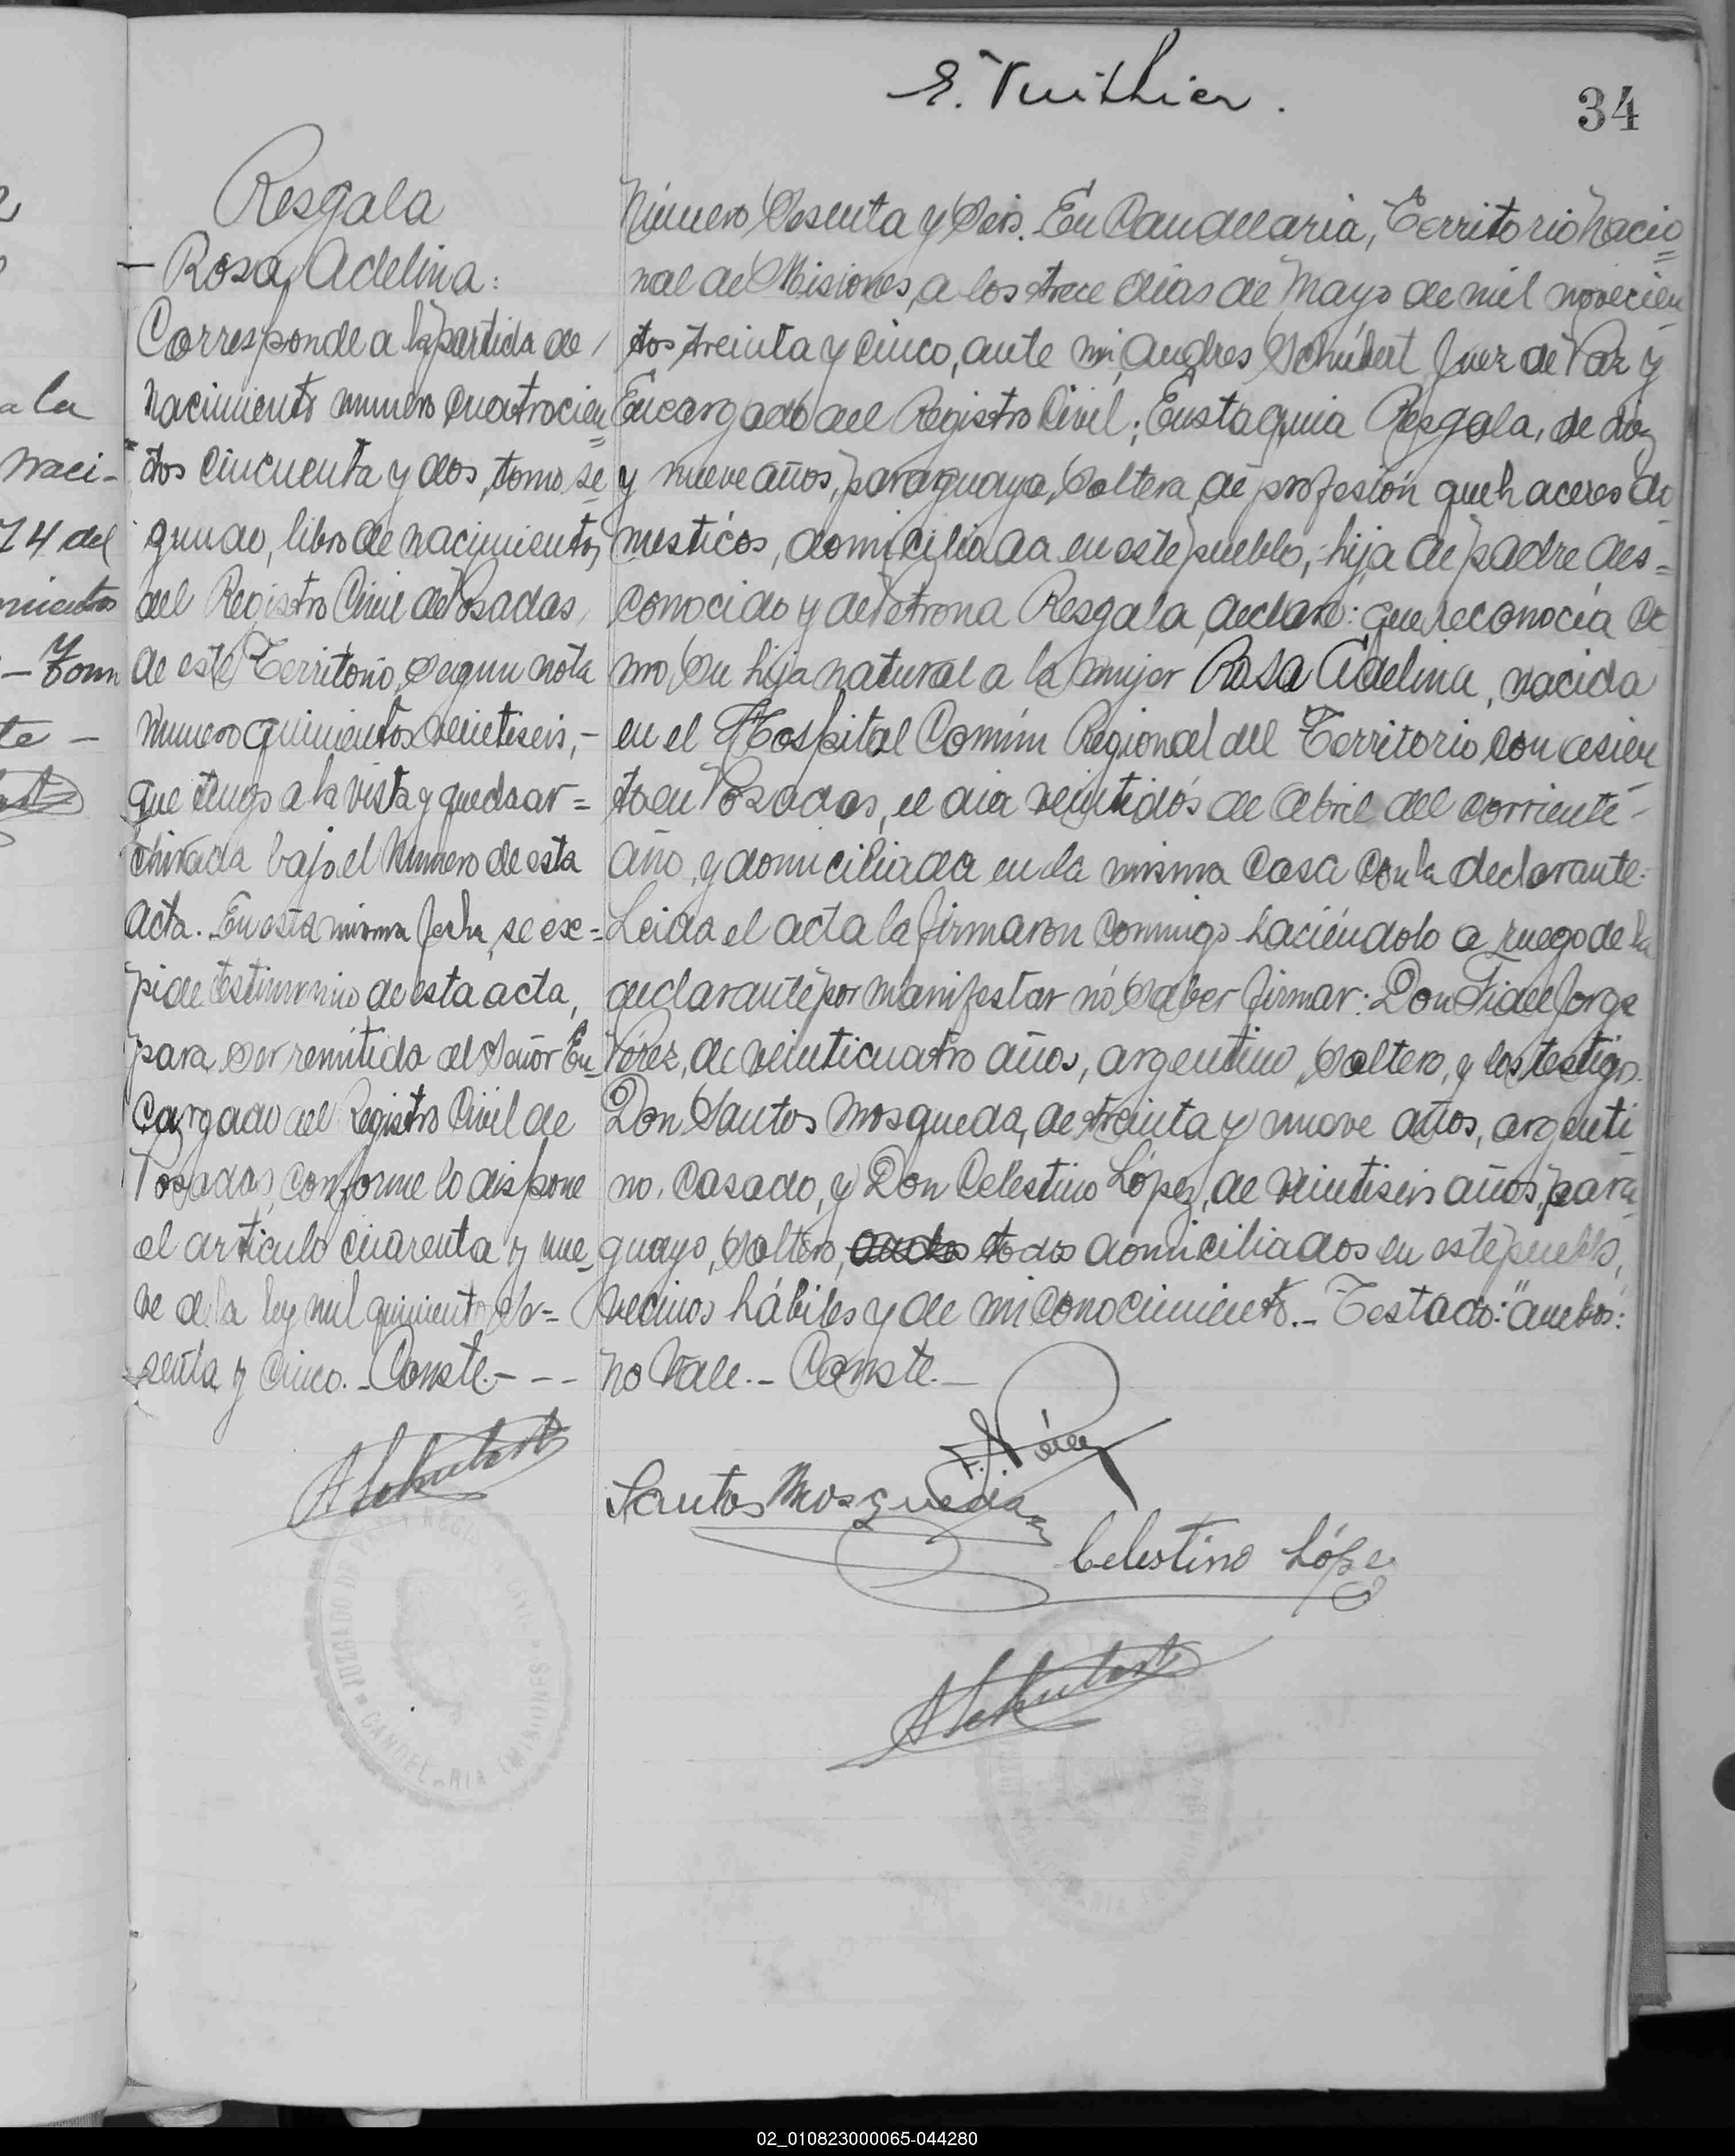 E. Vuithier.
34
Resgala
— Rosa Adelina:
Corresponde a la partida de
nacimiento numero cuatrocien=
tos cincuenta y dos, tomo se=
gundo, libro de nacimientos
del Registro Civil de Posadas,
de este Territorio, segun nota
numero quinientos veintiseis,-
que tengo a la vista y queda ar=
chivada bajo el numero de esta
acta. En esta misma fecha, se ex=
pide testimonio de esta acta,
para ser remitida al Señor En=
cargado del Registro Civil de
Posadas, conforme lo dispone
el artículo cuarenta y nue=
ve de la ley mil quinientos se=
senta y cinco. - Conste. - - -
ASchubert
Número Sesenta y Seis. En Candelaria, Territorio Nacio=
nal de Misiones, a los trece días de Mayo de mil novecien=
tos treinta y cinco, ante mi, Andres Schubert Juez de Paz y
Encargado del Registro Civil; Eustaquia Resgala, de diez
y nueve años, paraguaya, soltera, de profesión quehaceres do-
mesticos, domiciliada en este pueblo, hija de padre des=
conocido y de Petrona Resgala, declaro: que reconocía co
mo su hija natural a la mujer Rosa Adelina, nacida
en el Hospital Común Regional del Territorio con asien
to en Posadas, el dia veintidós de Abril del corriente-
año, y domiciliada en la misma casa con la declarante.
Leida el acta la firmaron conmigo haciéndolo a ruego de la
declarante por manifestar nó saber firmar: Don Fidel Jorge
Pérez, de veinticuatro años, argentino, soltero, y los testigos
Don Santos Mosqueda, de treinta y nueve años, argenti
no, casado, y Don Celestino López, de veintiseis años, para
guayo, soltero, todos domiciliados en este pueblo,
vecinos hábiles y de mi conocimiento. - Testado: "ambos":
no vale. - Conste. -
F. J. Pérez
Santos Mosqueda
Celestino López
ASchubert
JUZGADO DE PAZ Y REGISTRO CIVIL
CANDELARIA (MISIONES)
a la
naci-
74 del
mientos
- Tom
te -
02_010823000065-044280